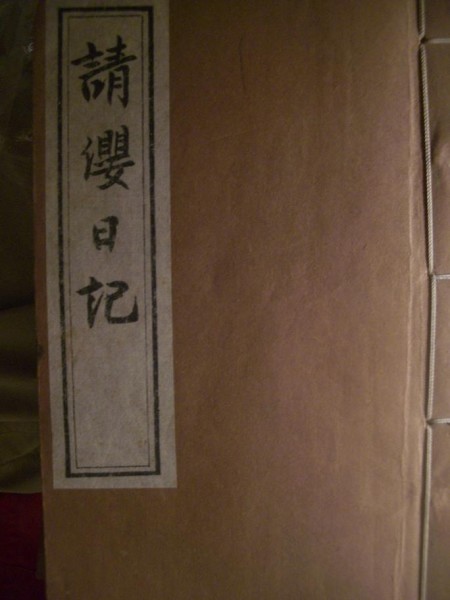 請纓日記